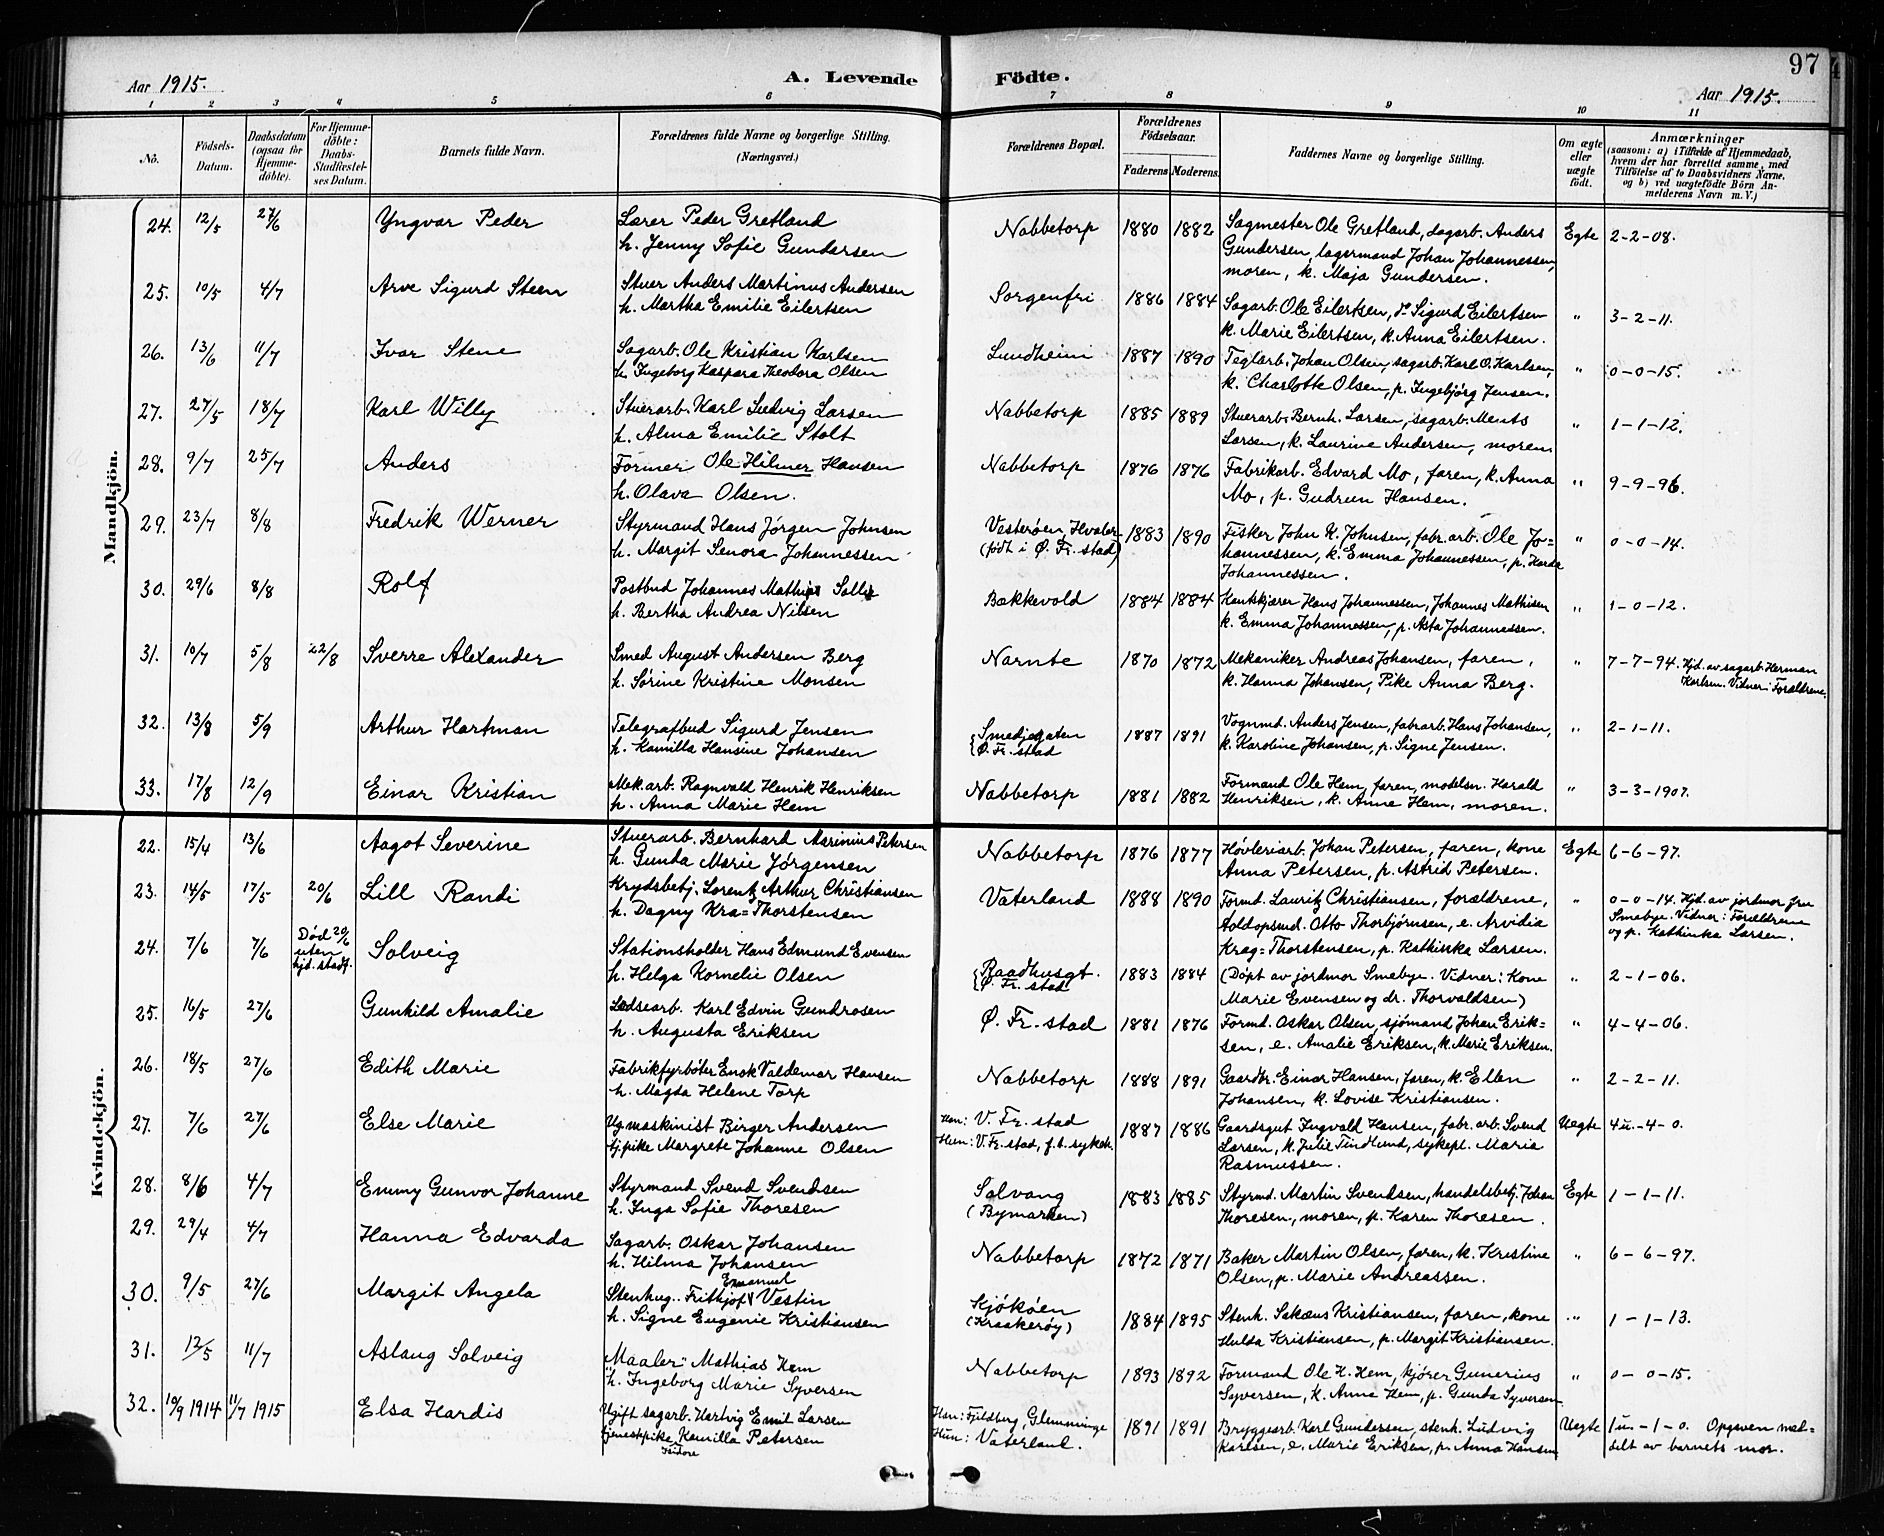 97
Aar 1915.
A. Levende
Födte.
Aar 1915.
1 2 3 4 5 6 7 8 9 10 11
No.
Födsels-Datum.
Daabsdatum (ogsaa for Hjemmedöbte).
For Hjemmedöbte: Daabs-Stadfæstelses Datum.
Barnets fulde Navn.
Forældrenes fulde Navne og borgerlige Stilling.
(Næringsvei.)
Forældrenes Bopæl.
Forældrenes Födselsaar.
Faderens Moderens.
Faddernes Navne og borgerlige Stilling.
Om ægte eller uægte födt.
Anmærkninger
(saasom: a) i Tilfælde af Hjemmedaab, hvem der har forrettet samme, med Tilföielse af to Daabsvidners Navne, og b) ved uægtefödte Börn Anmelderens Navn m. V.)
Mandkjön.
24. 12/5 27/6 Yngvar Peder Lærer Peder Gretland Nabbetorp 1880 1882 Sagmester Ole Gretland, sagarb. Anders Egte 2-2-08.
h. Jenny Sofie Gundersen Gundersen, lagermand Johan Johannessen,
moren, k. Maja Gundersen.
25. 10/5 4/7 Arve Sigurd Steen Stuer Anders Martinus Andersen Sorgenfri 1886 1884 Sagarb. Ole Eilertsen, do Sigurd Eilertsen " 3-2-11.
h. Martha Emilie Eilertsen k. Marie Eilertsen, k. Anna Eilertsen.
26. 13/6 11/7 Ivar Stene Sagarb. Ole Kristian Karlsen Lundheim 1887 1890 Teglarb. Johan Olsen, sagarb. Karl O. Karlsen, " 0-0-15.
h. Ingeborg Kaspara Theodora Olsen k. Charlotte Olsen, p. Ingebjörg Jensen.
27. 27/5 18/7 Karl Willy Stuerarb. Karl Ludvig Larsen Nabbetorp 1885 1889 Stuerarb. Bernh. Larsen, sagarb. Ments " 1-1-12.
h. Alma Emilie Stolt Larsen, k. Laurine Andersen, moren.
28. 9/7 25/7 Anders Former Ole Hilmer Hansen Nabbetorp 1876 1876 Fabrikarb. Edvard Mo, faren, k. Anna " 9-9-96.
h. Olava Olsen. Mo, p. Gudrun Hansen.
29. 23/7 8/8 Fredrik Werner Styrmand Hans Jörgen Johnsen Vesteröen Hvaler 1883 1890 Fisker John H. Johnsen, fabr.arb. Ole Jo= " 0-0-14.
h. Margit Senora Johannessen (födt i Ø. Fr.stad) hannessen, k. Emma Johannessen, p. Harda
Johannessen.
30. 29/6 8/8 Rolf Postbud Johannes Mathias Sollie Bakkevold 1884 1884 Johannes Mathisen " 1-0-12.
h. Bertha Andrea Nilsen k. Emma Johannessen, p. Asta Johannessen.
31. 10/7 5/8 22/8 Sverre Alexander Smed August Andersen Berg Narnte 1870 1872 Mekaniker Andreas Johansen, faren, " 7-7-94. Hjd. av sagarb. Herman
h. Sörine Kristine Monsen k. Hanna Johansen, Pike Anna Berg. Karlsen. Vidner: Forældrene.
32. 13/8 5/9 Arthur Hartman Telegrafbud Sigurd Jensen Smedjegaten 1887 1891 Vognmd. Anders Jensen, fabrarb. Hans Johansen, " 2-1-11.
h. Kamilla Hansine Johansen Ø. Fr. stad k. Karoline Johansen, p. Signe Jensen.
33. 17/8 12/9 Einar Kristian Mek.arb. Ragnvald Henrik Henriksen Nabbetorp 1881 1882 Formand Ole Hem, faren, modelsn. Harald " 3-3-1907.
h. Anna Marie Hem Henriksen, k. Anne Hem, moren.
Kvindekjön.
22. 15/4 13/6 Aagot Severine Stuerarb. Bernhard Marinius Petersen Nabbetorp 1876 1877 Hövleriarb. Johan Petersen, faren, kone Egte 6-6-97.
h. Gunda Marie Jörgensen Anna Petersen, p. Astrid Petersen.
23. 14/5 17/5 20/6 Lill Randi Krydsbetj. Lorentz Arthur Christiansen Vaterland 1888 1890 Formd. Lauritz Christiansen, forældrene, " 0-0-14. Hjd. av jordmor fru
h. Dagny Kra=Thorstensen Toldopsmd. Otto Thorbjörnsen, e. Arvidia Smebye. Vidner: Forældrene
Krag=Thorstensen, p. Kathinka Larsen. og p. Kathinka Larsen.
24. 7/6 7/6 Död 20/6 uten hjd. stadf. Solveig Stationsholder Hans Edmund Evensen Raadhusgt. 1883 1884 (Döpt av jordmor Smebye. Vidner: Kone " 2-1-06.
h. Helga Kornelie Olsen Ø. Fr. stad Marie Evensen og dr. Thorvaldsen)
25. 16/5 27/6 Gunhild Amalie Lodsearb. Karl Edvin Gundrosen Ø. Fr. stad 1881 1876 Formd. Oskar Olsen, sjömand Johan Erik= " 4-4-06.
h. Augusta Eriksen sen, e. Amalie Eriksen, k. Marie Eriksen.
26. 18/5 27/6 Edith Marie Fabrikfyrböter Enok Valdemar Hansen Nabbetorp 1888 1891 Gaardbr. Einar Hansen, faren, k. Ellen " 2-2-11.
h. Magda Helene Torp Johansen, k. Lovise Kristiansen.
27. 7/6 27/6 Else Marie Ug. maskinist Birger Andersen Han: V. Fr. stad 1887 1886 Gaardsgut Ingvald Hansen, fabr. arb. Svend Uegte 4u.-4-0.
tj.pike Margrete Johanne Olsen Hun: V. Fr. stad, f. t. sykeh. Larsen, k. Julie Tindlund, sykepl. Maria
Rasmussen.
28. 8/6 4/7 Emmy Gunvor Johanne Styrmand Svend Svendsen Solvang 1883 1885 Styrmd. Martin Svendsen, handelsbetj. Johan Egte 1-1-11.
h. Inga Sofie Thoresen (Bymarken) Thoresen, moren, p. Karen Thoresen.
29. 29/4 4/7 Hanna Edvarda Sagarb. Oskar Johansen Nabbetorp 1872 1871 Baker Martin Olsen, faren, k. Kristine " 6-6-97.
h. Hilma Johansen Olsen, p. Marie Andreassen.
30. 9/5 27/6 Margit Angela Stenhug. Frithjof Emanuel Vestin Kjököen 1884 1895 Stenh. Sakæus Kristiansen, faren, kone " 1-1-13.
h. Signe Eugenie Kristiansen (Kraakeröy) Hulda Kristiansen, p. Margit Kristiansen.
31. 12/5 11/7 Aslaug Solveig Maaler Mathias Hem Nabbetorp 1893 1892 Formand Ole H. Hem, kjörer Gunerius " 0-0-15.
h. Ingeborg Marie Syversen Syversen, k. Anne Hem, p. Gunda Syversen
32. 10/9 1914 11/7 1915 Elsa Hardis Ugift sagarb. Hartvig Emil Larsen Han: Fjeldberg, Glemminge 1891 1891 Bryggearb. Karl Gundersen, stenh. Ludvig Uegte 1un.-1-0. Opgaven med=
tjenestpike Kamilla Isidore Petersen Hun: Vaterland. Karlsen, e. Marie Eriksen, p. Anna Hansen delt av barnets mor.